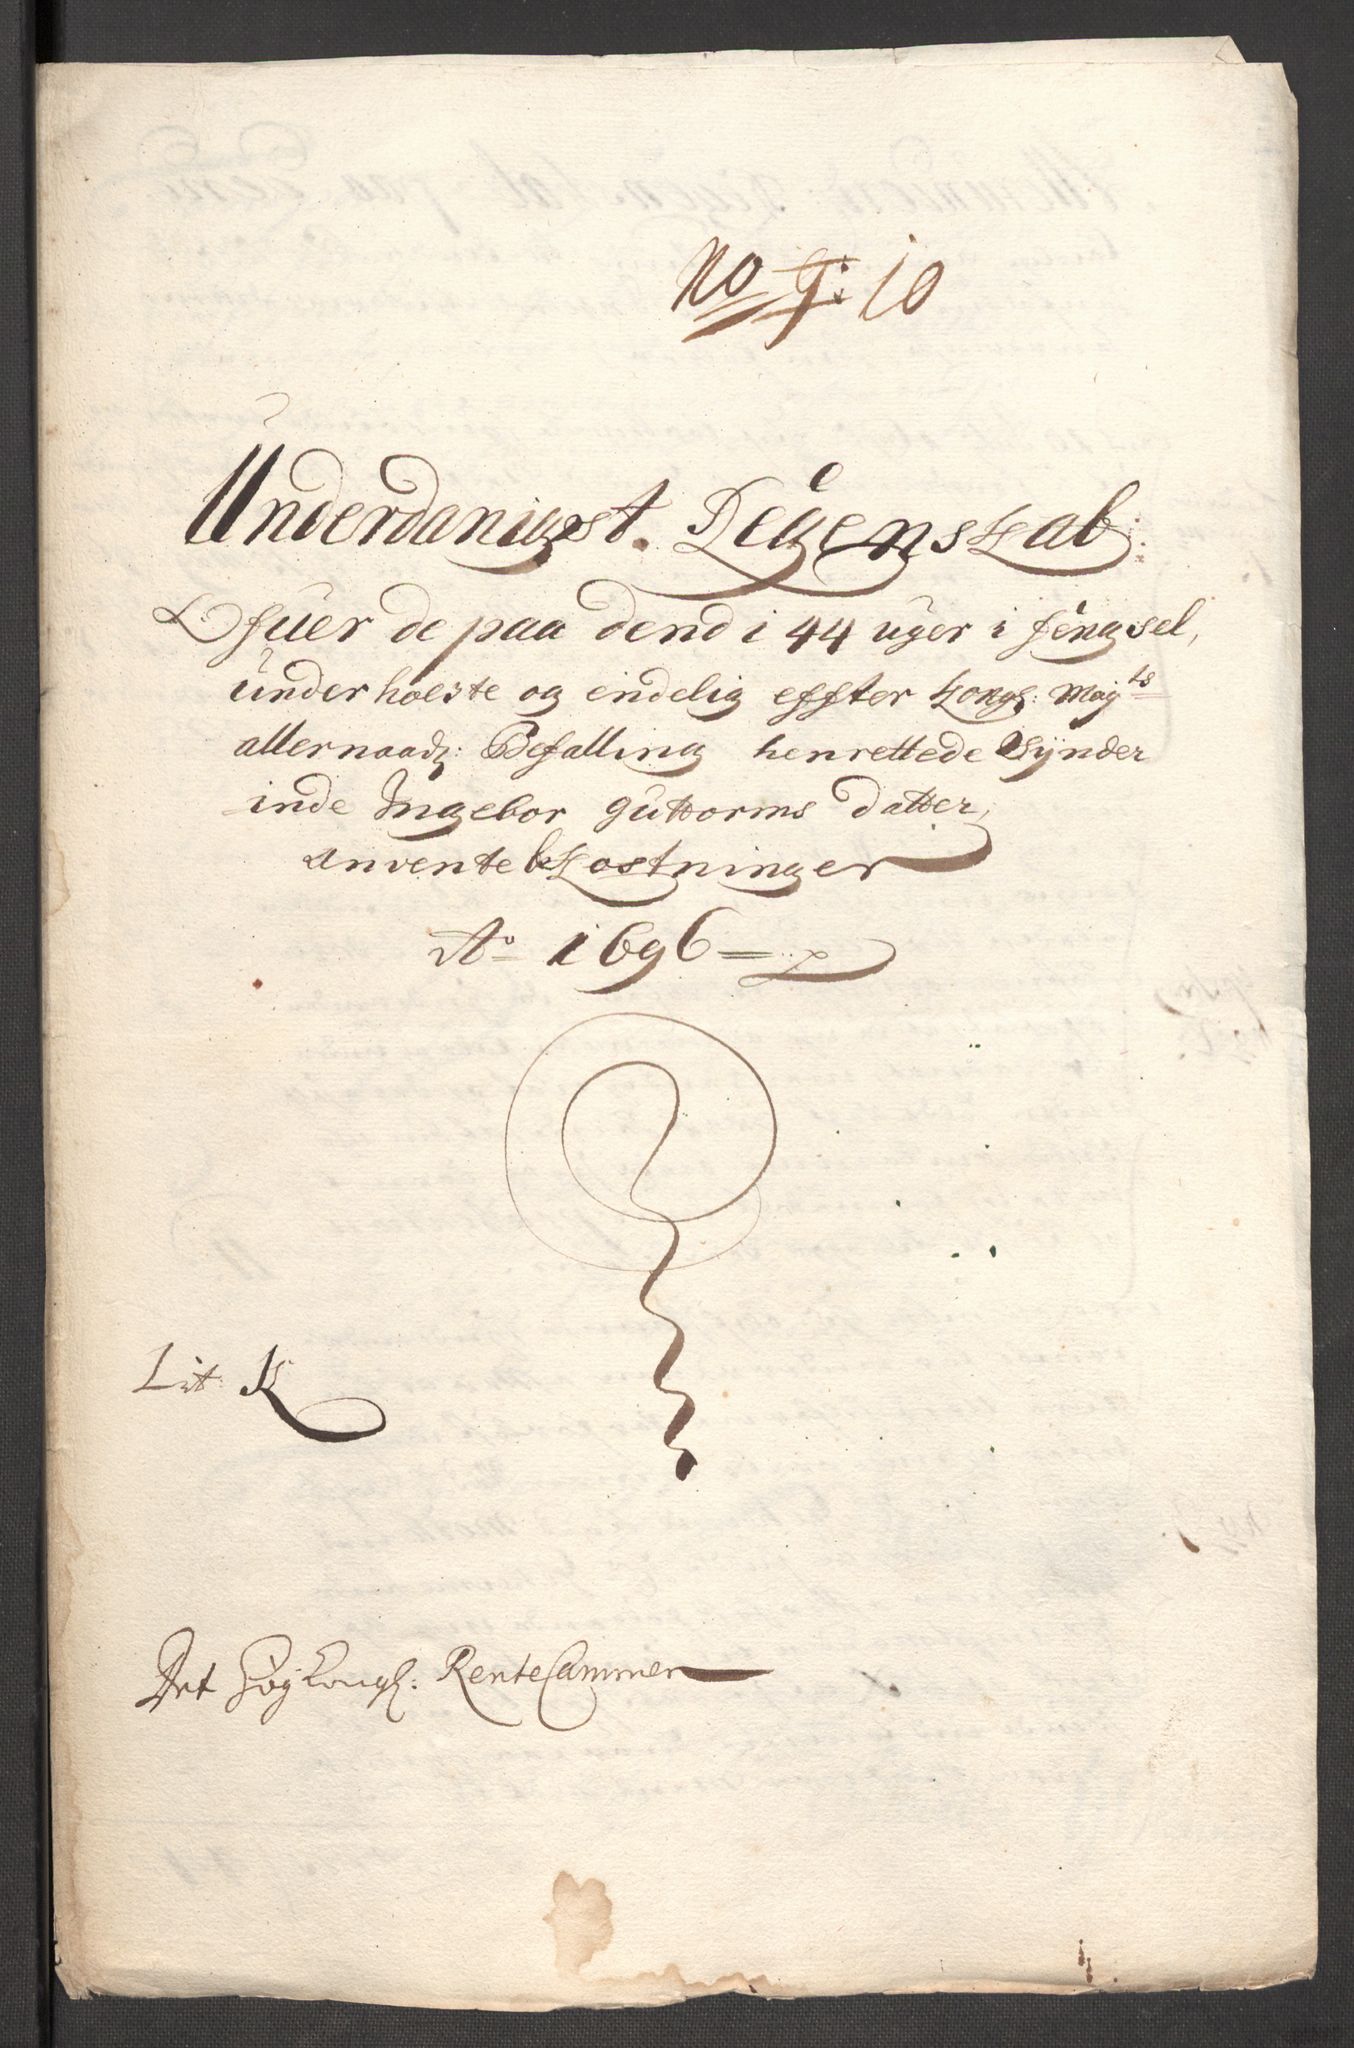 No 9: 10
Underdanigst Regenskab
Ofuer de paa dend i 44 uger i fengsel,
underholste og endelig effter Kongl: Mayts
allernaadg: Befalling henrettede Synder
inde Ingebor Guttorms datter,
anvente bekostninger
Ao 1696
Lit: K
Det Høy Kongl: Rente Cammer